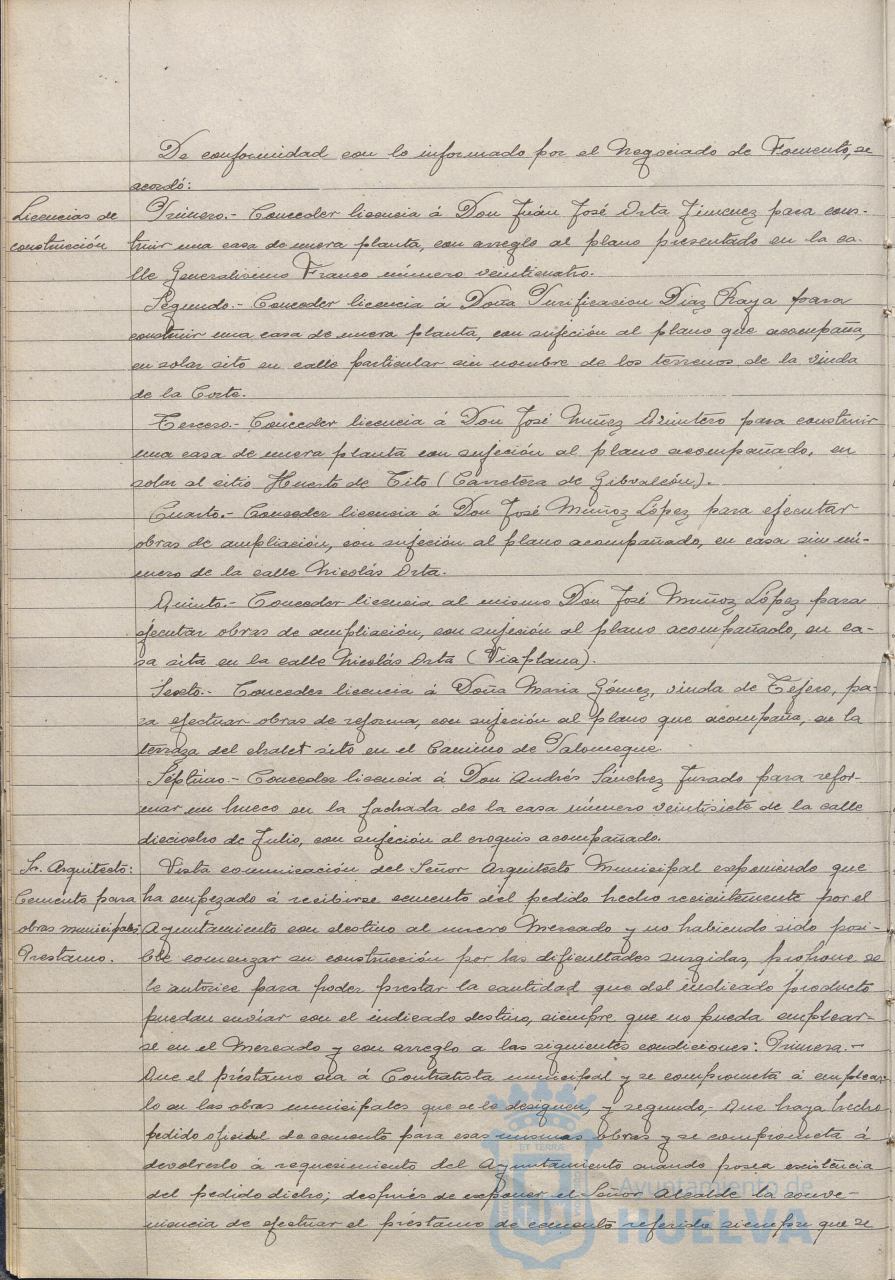 De conformidad con lo informado por el Negociado de Fomento, se
acordó:
Licencias de
construcción
Primero.- Conceder licencia á Don Juán José Orta Jimenez para cons-
truir una casa de nueva planta, con arreglo al plano presentado en la ca-
lle Generalisimo Franco número veinticuatro.
Segundo.- Conceder licencia á Doña Purificacion Diaz Raya para
construir una casa de nueva planta, con sujeción al plano que acompaña,
en solar sito en calle particular sin nombre de los terrenos de la viuda
de la Corte.
Tercero.- Conceder licencia á Don José Muñoz Quintero para construir
una casa de nueva planta con sujeción al plano acompañado, en
solar al sitio Huerto de Tito (Carretera de Gibraleón).
Cuarto.- Conceder licencia á Don José Muñoz López para ejecutar
obras de ampliación, con sujeción al plano acompañado, en casa sin nú-
mero de la calle Nicolás Orta.
Quinto.- Conceder licencia al mismo Don José Muñoz López para
ejecutar obras de ampliación, con sujeción al plano acompañado, en ca-
sa sita en la calle Nicolás Orta (Viaplana).
Sexto.- Conceder licencia á Doña Maria Gómez, viuda de Tejero, pa-
ra efectuar obras de reforma, con sujeción al plano que acompaña, en la
terraza del chalet sito en el Camino de Palomeque.
Séptimo.- Conceder licencia á Don Andrés Sánchez Jurado para refor-
mar un hueco en la fachada de la casa número veintisiete de la calle
dieciocho de Julio, con sujeción al croquis acompañado.
Sr. Arquitecto:
Cemento para
obras municipales.
Prestamo.
Vista comunicación del Señor Arquitecto Municipal exponiendo que
ha empezado á recibirse cemento del pedido hecho recientemente por el
Ayuntamiento con destino al nuevo Mercado y no habiendo sido posi-
ble comenzar su construcción por las dificultades surgidas, propone se
le autorice para poder prestar la cantidad que del indicado producto
puedan enviar con el indicado destino, siempre que no pueda emplear-
se en el Mercado y con arreglo a las siguientes condiciones: Primera.-
Que el préstamo sea á Contratista municipal y se comprometa á emplear-
lo en las obras municipales que se le designen, y segundo.- Que haya hecho
pedido oficial de cemento para esas mismas obras y se comprometa á
devolverlo á requerimiento del Ayuntamiento cuando posea existencia
del pedido dicho; después de exponer el Señor Alcalde la conve-
niencia de efectuar el préstamo de cemento referido siempre que se
Ayuntamiento de
HUELVA